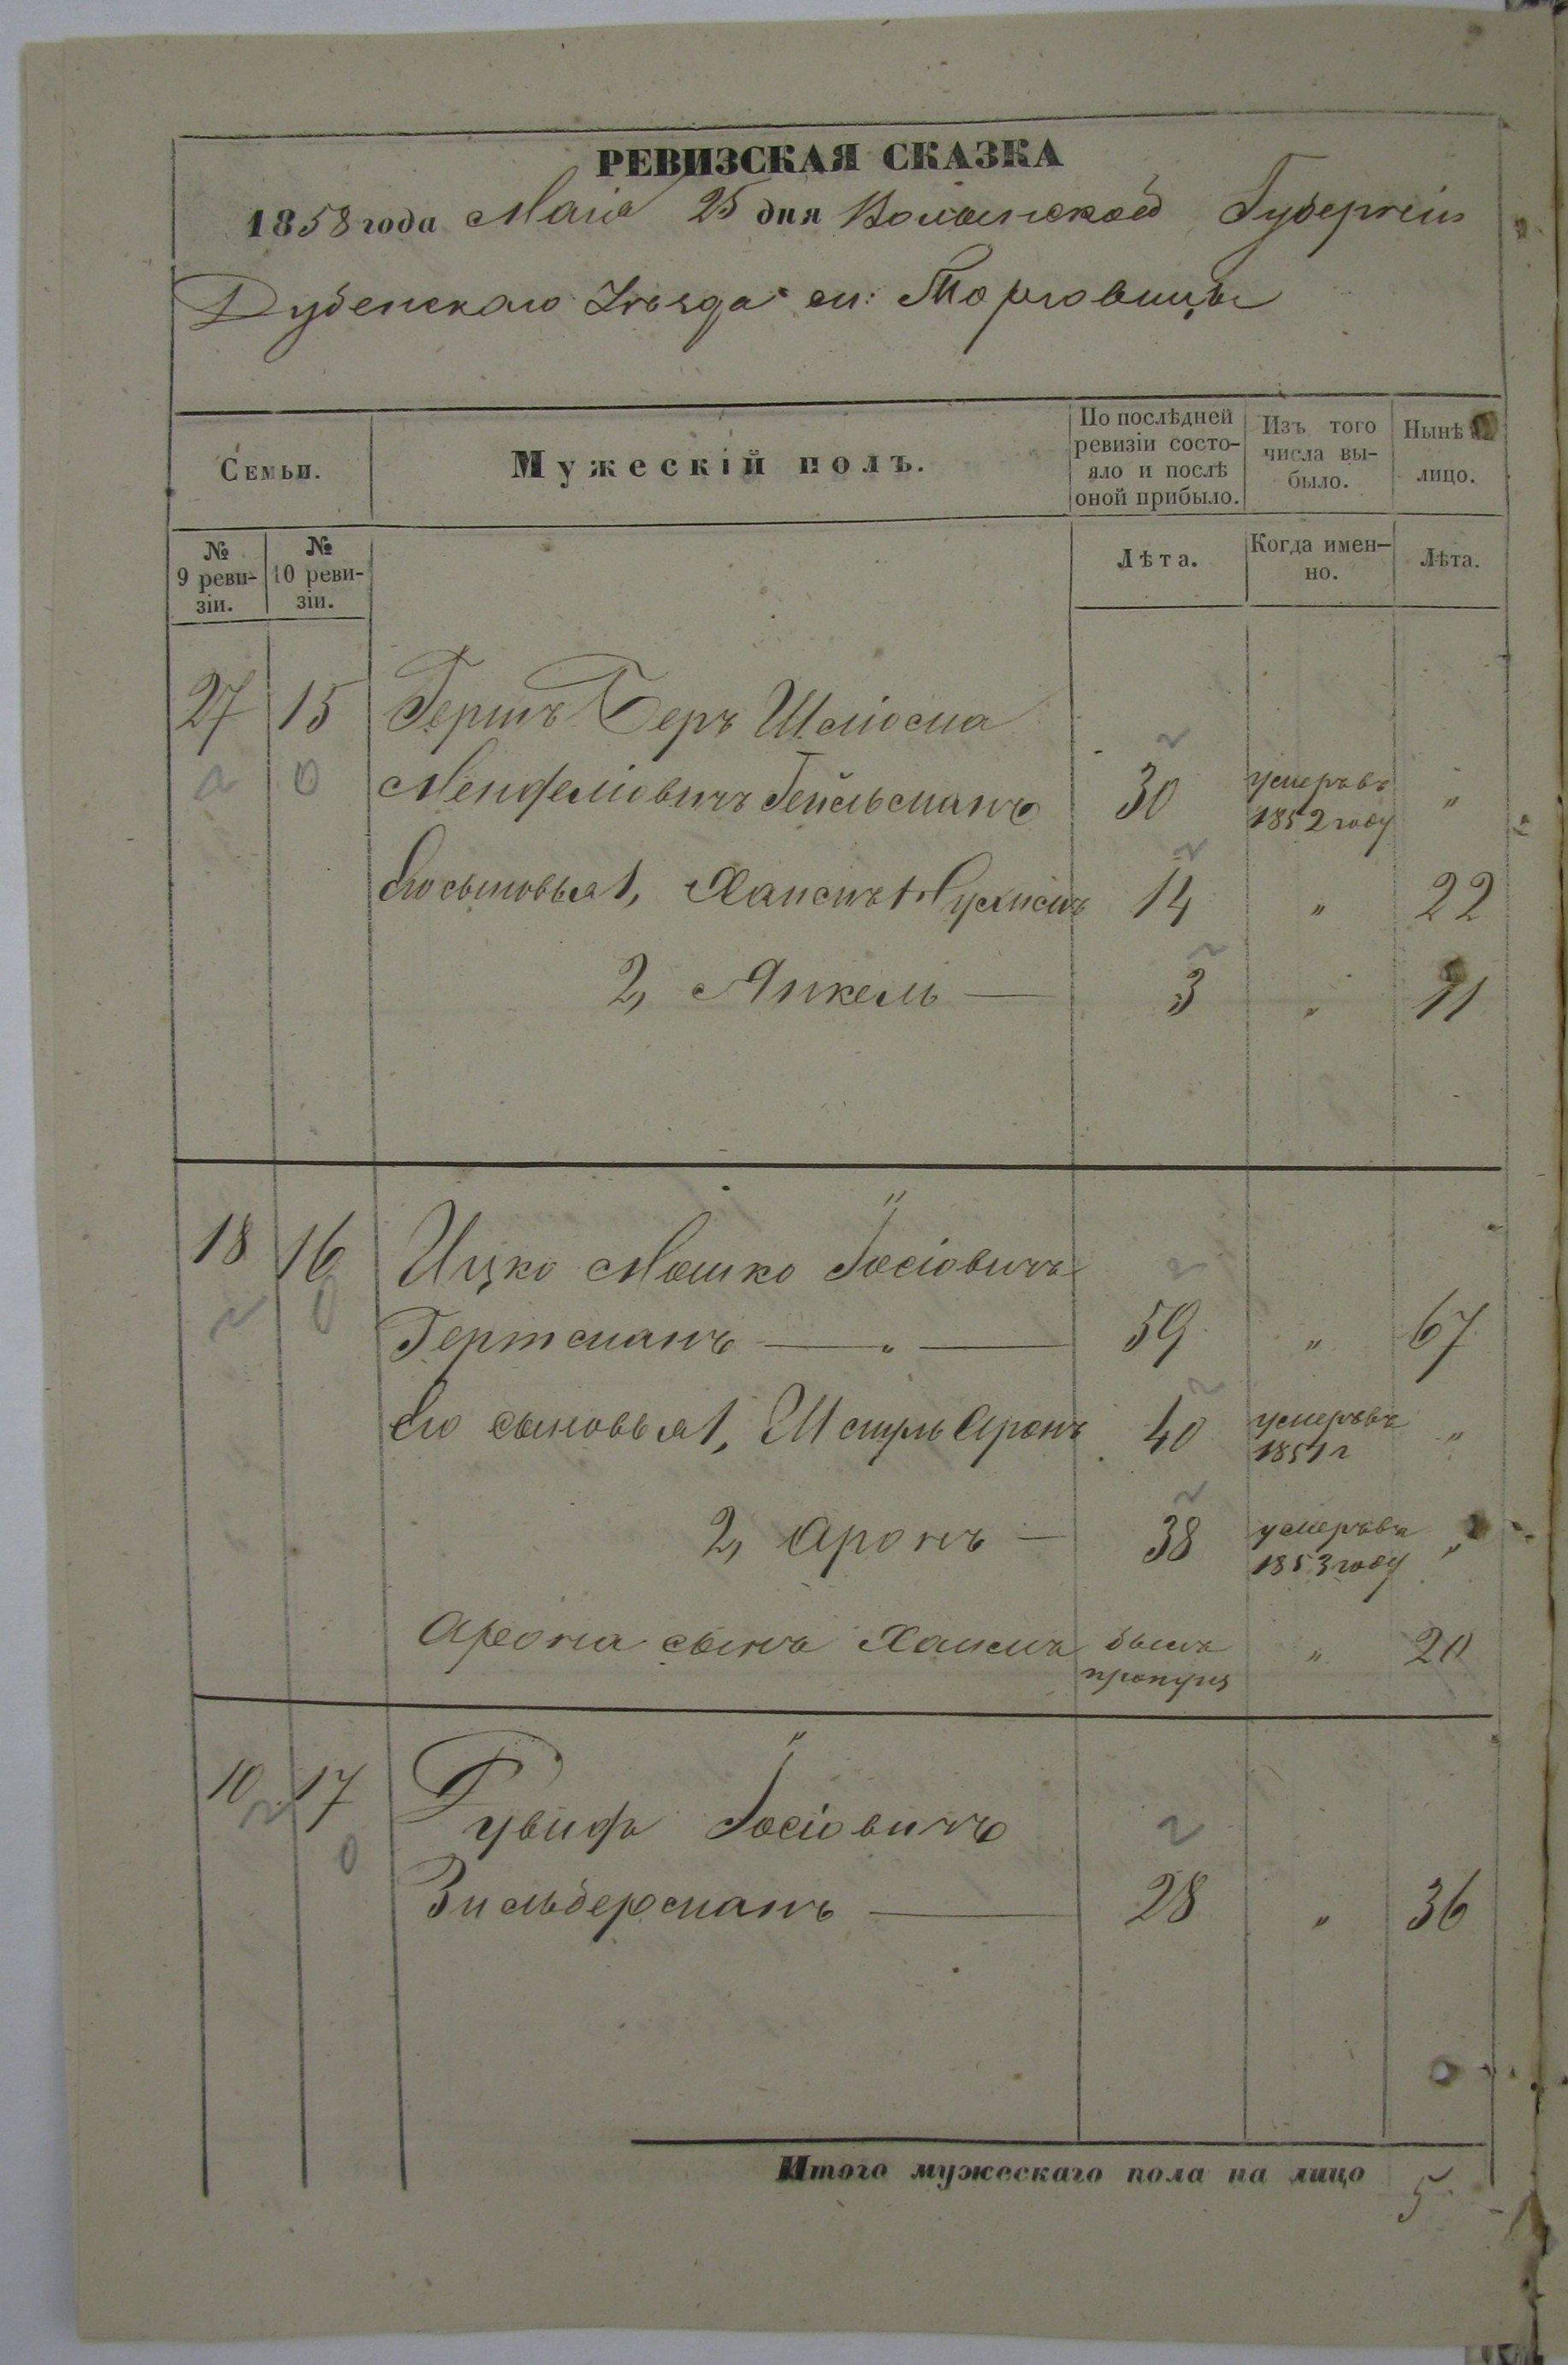 РЕВИЗСКАЯ СКАЗКА
1858 года Маія 25 дня Волынской Губерніи
Дубенскаго Уѣзда м: Торговицы
Семьи.
Мужескій полъ.
По послѣдней ревизіи состо-
яло и послѣ
оной прибыло.
Изъ того
числа вы-
было.
Нынѣ
лицо.
№
9 реви-
зіи.
№
10 реви-
зіи.
Лѣта.
Когда имен-
но.
Лѣта.
27 15 Гершъ Беръ Шліома
Менделіовичъ Гейльманъ 30 умеръ въ 1852 году "
Его сыновья 1, Хаимъ 14 " 22
2, Янкель — 3 " 11
18 16 Ицко Мошко Іосіовичъ
Гертсманъ — " — 59 " 67
Его сыновья 1, Шмуль Аронъ 40 умеръ въ 1851 г "
2, Аронъ — 38 умеръ въ 1853 году "
Арона сынъ Хаимъ былъ пропущ " 20
10 17 Рувинъ Іосіовичъ
Зильберманъ — 28 " 36
Итого мужескаго пола на лицо 5